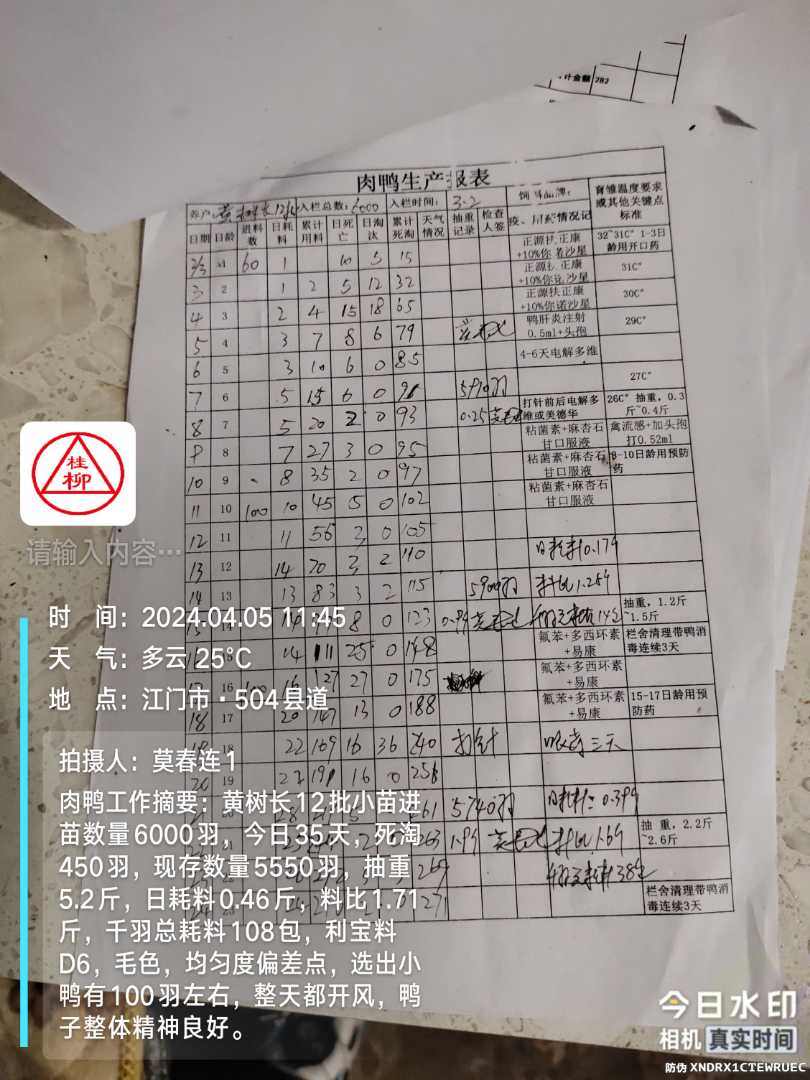 计金额 282
肉鸭生产报表
养户: 黄树长12批 入栏总数: 6000 入栏时间: 3.2
育雏温度要求或其他关键点标准
日期 日龄 进料数 日耗料 累计用料 日死亡 日淘汰 累计死淘 天气情况 抽重记录 检查人签
2/3 1 60 1 10 5 15 正源扶正康+10%你诺沙星 32~31C° 1-3日龄用开口药
3 2 1 2 5 12 32 正源扶正康+10%你诺沙星 31C°
4 3 2 4 15 18 65 正源扶正康+10%你诺沙星 30C°
5 4 3 7 8 6 79 鸭肝炎注射0.5ml+头孢 29C°
6 5 3 10 6 0 85 4-6天电解多维
7 6 5 15 6 0 91 5910羽 27C°
8 7 5 20 2 0 93 0.25 打针前后电解多维或美德华 26C° 抽重,0.3斤~0.4斤
9 8 7 27 3 0 95 粘菌素+麻杏石甘口服液 禽流感+加头孢打0.52ml
10 9 8 35 2 0 97 粘菌素+麻杏石甘口服液 8-10日龄用预防药
11 10 100 10 45 5 0 102 粘菌素+麻杏石甘口服液
12 11 11 56 3 0 105
13 12 14 70 3 2 110 日耗料0.179
14 13 13 83 3 2 115 5900羽 料比1.259
14 8 0 123 抽重,1.2斤~1.5斤
14 111 25 0 148 氟苯+多西环素+易康 栏舍清理带鸭消毒连续3天
17 16 100 16 127 27 0 175 氟苯+多西环素+易康
18 17 20 147 13 0 188 氟苯+多西环素+易康 15-17日龄用预防药
18 22 169 16 36 240 打针 三天
20 19 22 191 16 0 256
5740羽
263 1.99 料比1.69 抽重,2.2斤~2.6斤
栏舍清理带鸭消毒连续3天
桂柳
请输入内容…
时 间: 2024.04.05 11:45
天 气: 多云 25℃
地 点: 江门市·504县道
拍摄人: 莫春连1
肉鸭工作摘要: 黄树长12批小苗进
苗数量6000羽,今日35天,死淘
450羽,现存数量5550羽,抽重
5.2斤,日耗料0.46斤,料比1.71
斤,千羽总耗料108包,利宝料
D6,毛色,均匀度偏差点,选出小
鸭有100羽左右,整天都开风,鸭
子整体精神良好。
今日水印
相机 真实时间
防伪 XNDRX1CTEWRUEC